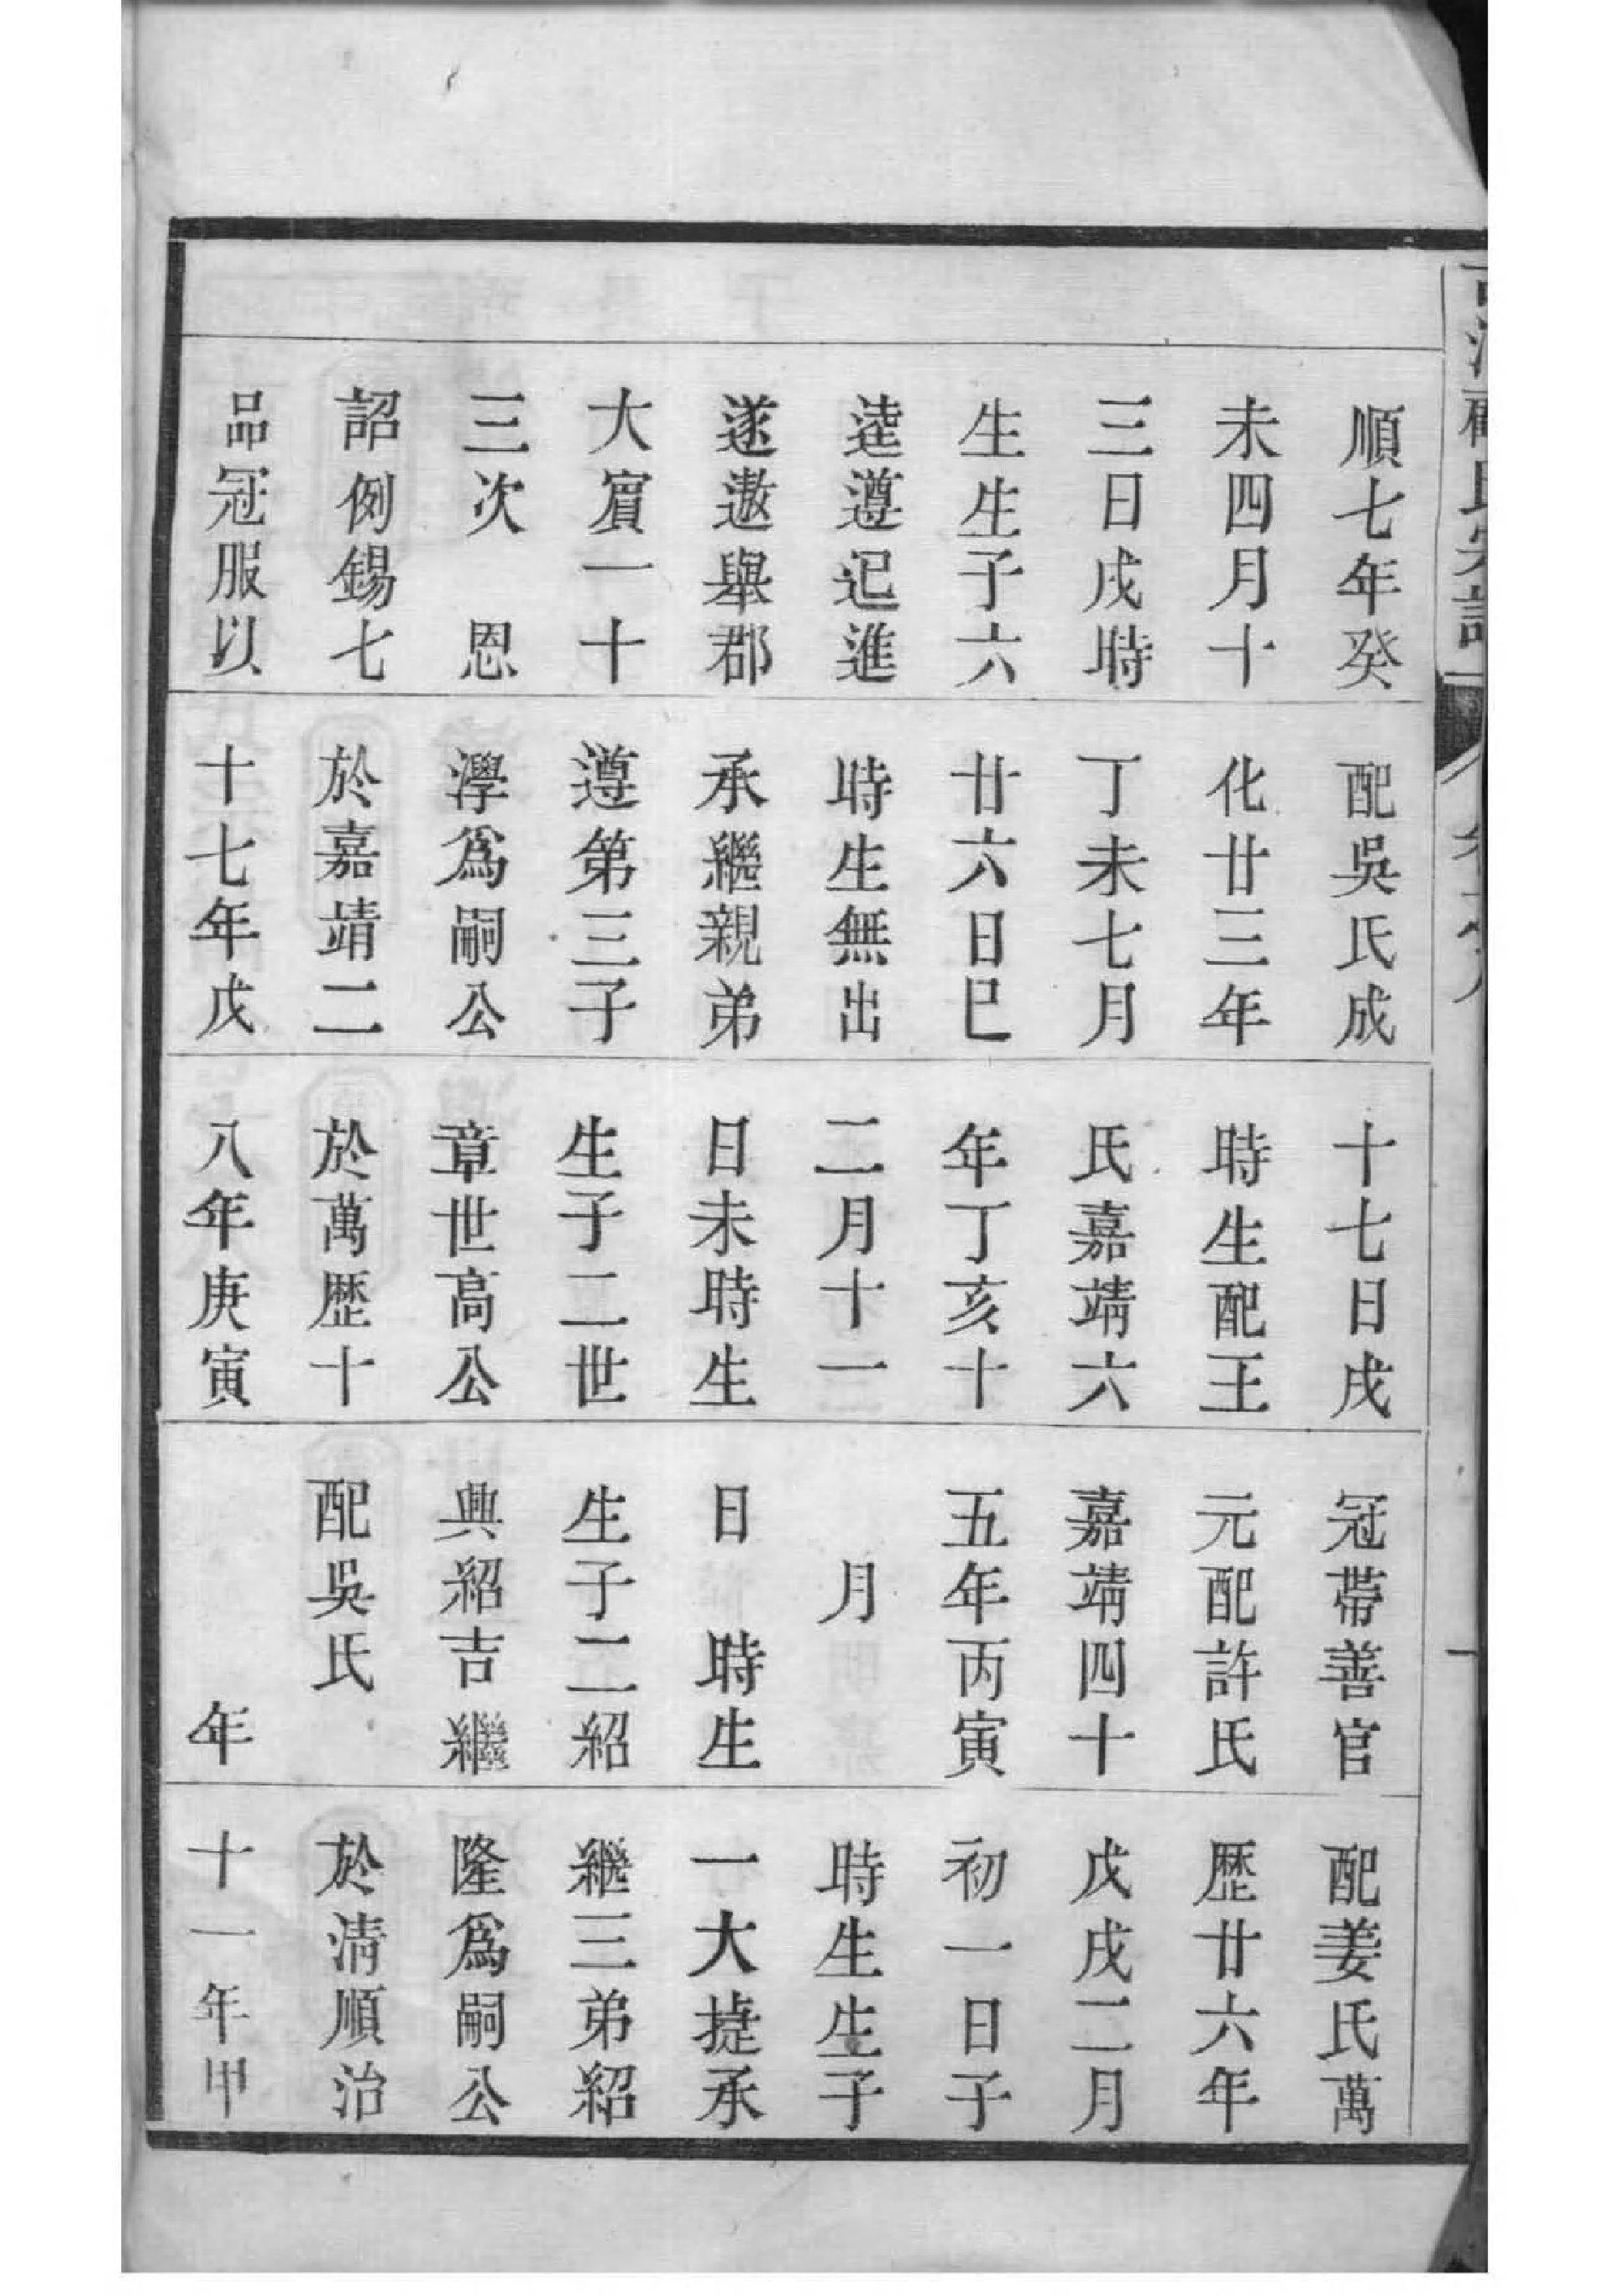 順七年癸
未四月十
三日戌時
生生子六
逵遵迅進
遂遨舉郡
大賔一十
三次　恩
詔例錫七
品冠服以
配吳氏成
化廿三年
丁未七月
廿六日巳
時生無出
承繼親弟
遵第三子
澩爲嗣公
於嘉靖二
十七年戊
十七日戌
時生配王
氏嘉靖六
年丁亥十
二月十一
日未時生
生子二世
章世高公
於萬歷十
八年庚寅
冠帶善官
元配許氏
嘉靖四十
五年丙寅
月
日　時生
生子二紹
興紹吉繼
配吳氏
年
配姜氏萬
歷廿六年
戊戌二月
初一日子
時生生子
一大㨗承
繼三弟紹
隆爲嗣公
於清順治
十一年甲